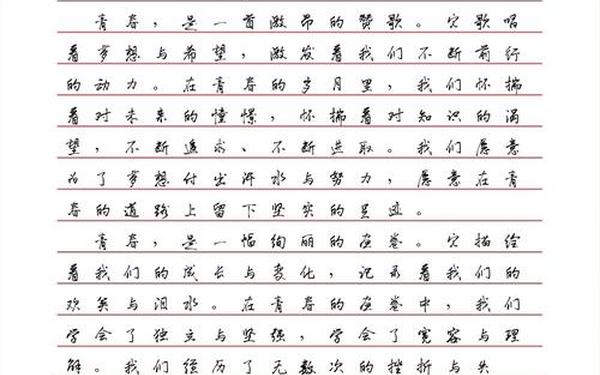 青春，是一首激昂的赞歌。它歌唱
着梦想与希望，激发着我们不断前行
的动力。在青春的岁月里，我们怀揣
着对未来的憧憬，怀揣着对知识的渴
望，不断追求、不断进取。我们愿意
为了梦想付出汗水与努力，愿意在青
春的道路上留下坚实的足迹。
青春，是一幅绚丽的画卷。它描绘
着我们的成长与变化，记录着我们的
欢笑与泪水。在青春的画卷中，我们
学会了独立与坚强，学会了宽容与理
解。我们经历了无数次的挫折与失